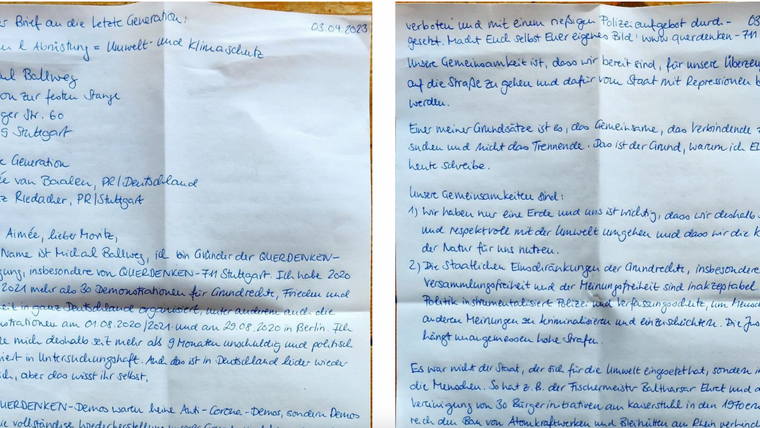 r Brief an die Letzte Generation:
03.04.2023
n & Abrüstung = Umwelt- und Klimaschutz
al Ballweg
on zur festen Stange
ger Str. 60
Stuttgart
e Generation
ée van Baalen, PR/Deutschland
z Riedacher, PR/Stuttgart
Aimée, lieber Moritz,
Name ist Michael Ballweg, ich bin Gründer der QUERDENKEN-
gung, insbesondere von QUERDENKEN-711 Stuttgart. Ich habe 2020
2021 mehr als 30 Demonstrationen für Grundrechte, Frieden und
eit in ganz Deutschland organisiert, unter anderem auch die
nstrationen am 01.08.2020/2021 und am 29.08.2020 in Berlin. Ich
e mich deshalb seit mehr als 9 Monaten unschuldig und politisch
iert in Untersuchungshaft. Auch das ist in Deutschland leider wieder
ch, aber das wisst ihr selbst.
UERDENKEN-Demos waren keine Anti-Corona-Demos, sondern Demos
ie vollständige Wiederherstellung
verboten und mit einem riesigen Polizeiaufgebot durch-
03
gesetzt. Macht Euch selbst Euer eigenes Bild: www.querdenken-711
Unsere Gemeinsamkeit ist, dass wir bereit sind, für unsere Überzeu
auf die Straße zu gehen und dafür vom Staat mit Repressionen b
werden.
Einer meiner Grundsätze ist es, das Gemeinsame, das Verbindende z
suchen und nicht das Trennende. Das ist der Grund, warum ich E
heute schreibe.
Unsere Gemeinsamkeiten sind:
1) Wir haben nur eine Erde und uns ist wichtig, dass wir deshalb
und respektvoll mit der Umwelt umgehen und dass wir die K
der Natur für uns nutzen.
2) Die staatlichen Einschränkungen der Grundrechte, insbesondere
Versammlungsfreiheit und der Meinungsfreiheit sind inakzeptabel
Politik instrumentalisiert Polizei und Verfassungsschutz, um Mensch
anderen Meinungen zu kriminalisieren und einzuschüchtern. Die Jus
hängt unangemessen hohe Strafen.
Es war nicht der Staat, der sich für die Umwelt eingesetzt hat, sondern i
die Menschen. So hat z.B. der Fischermeister Balthasar Ehret und d
vereinigung von 30 Bürgerinitiativen am Kaiserstuhl in den 1970er
reich den Bau von Atomkraftwerken und Bleihütten am Rhein verhind